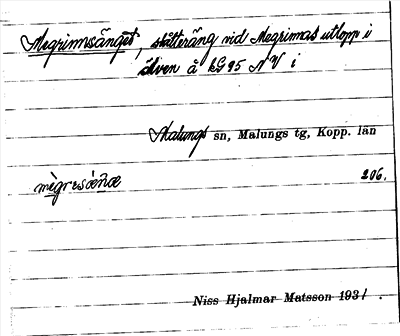 Megrimsänget, slåtteräng vid Megrimas utlopp i
älven å kG 95 NV i
Malungs sn, Malungs tg, Kopp. län
mègresǽŋæ 206.
Niss Hjalmar Matsson 1931.